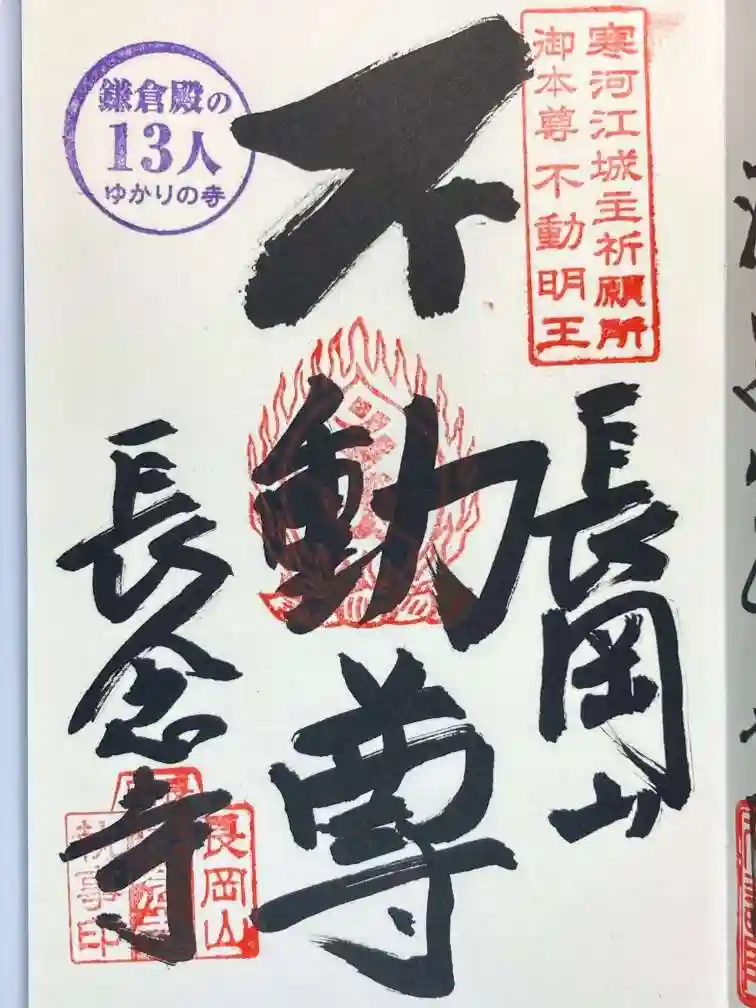 寒河江城主祈願所
御本尊 不動明王
長岡山
不動尊
鎌倉殿の
13人
ゆかりの寺
長念寺
長岡山
執事印